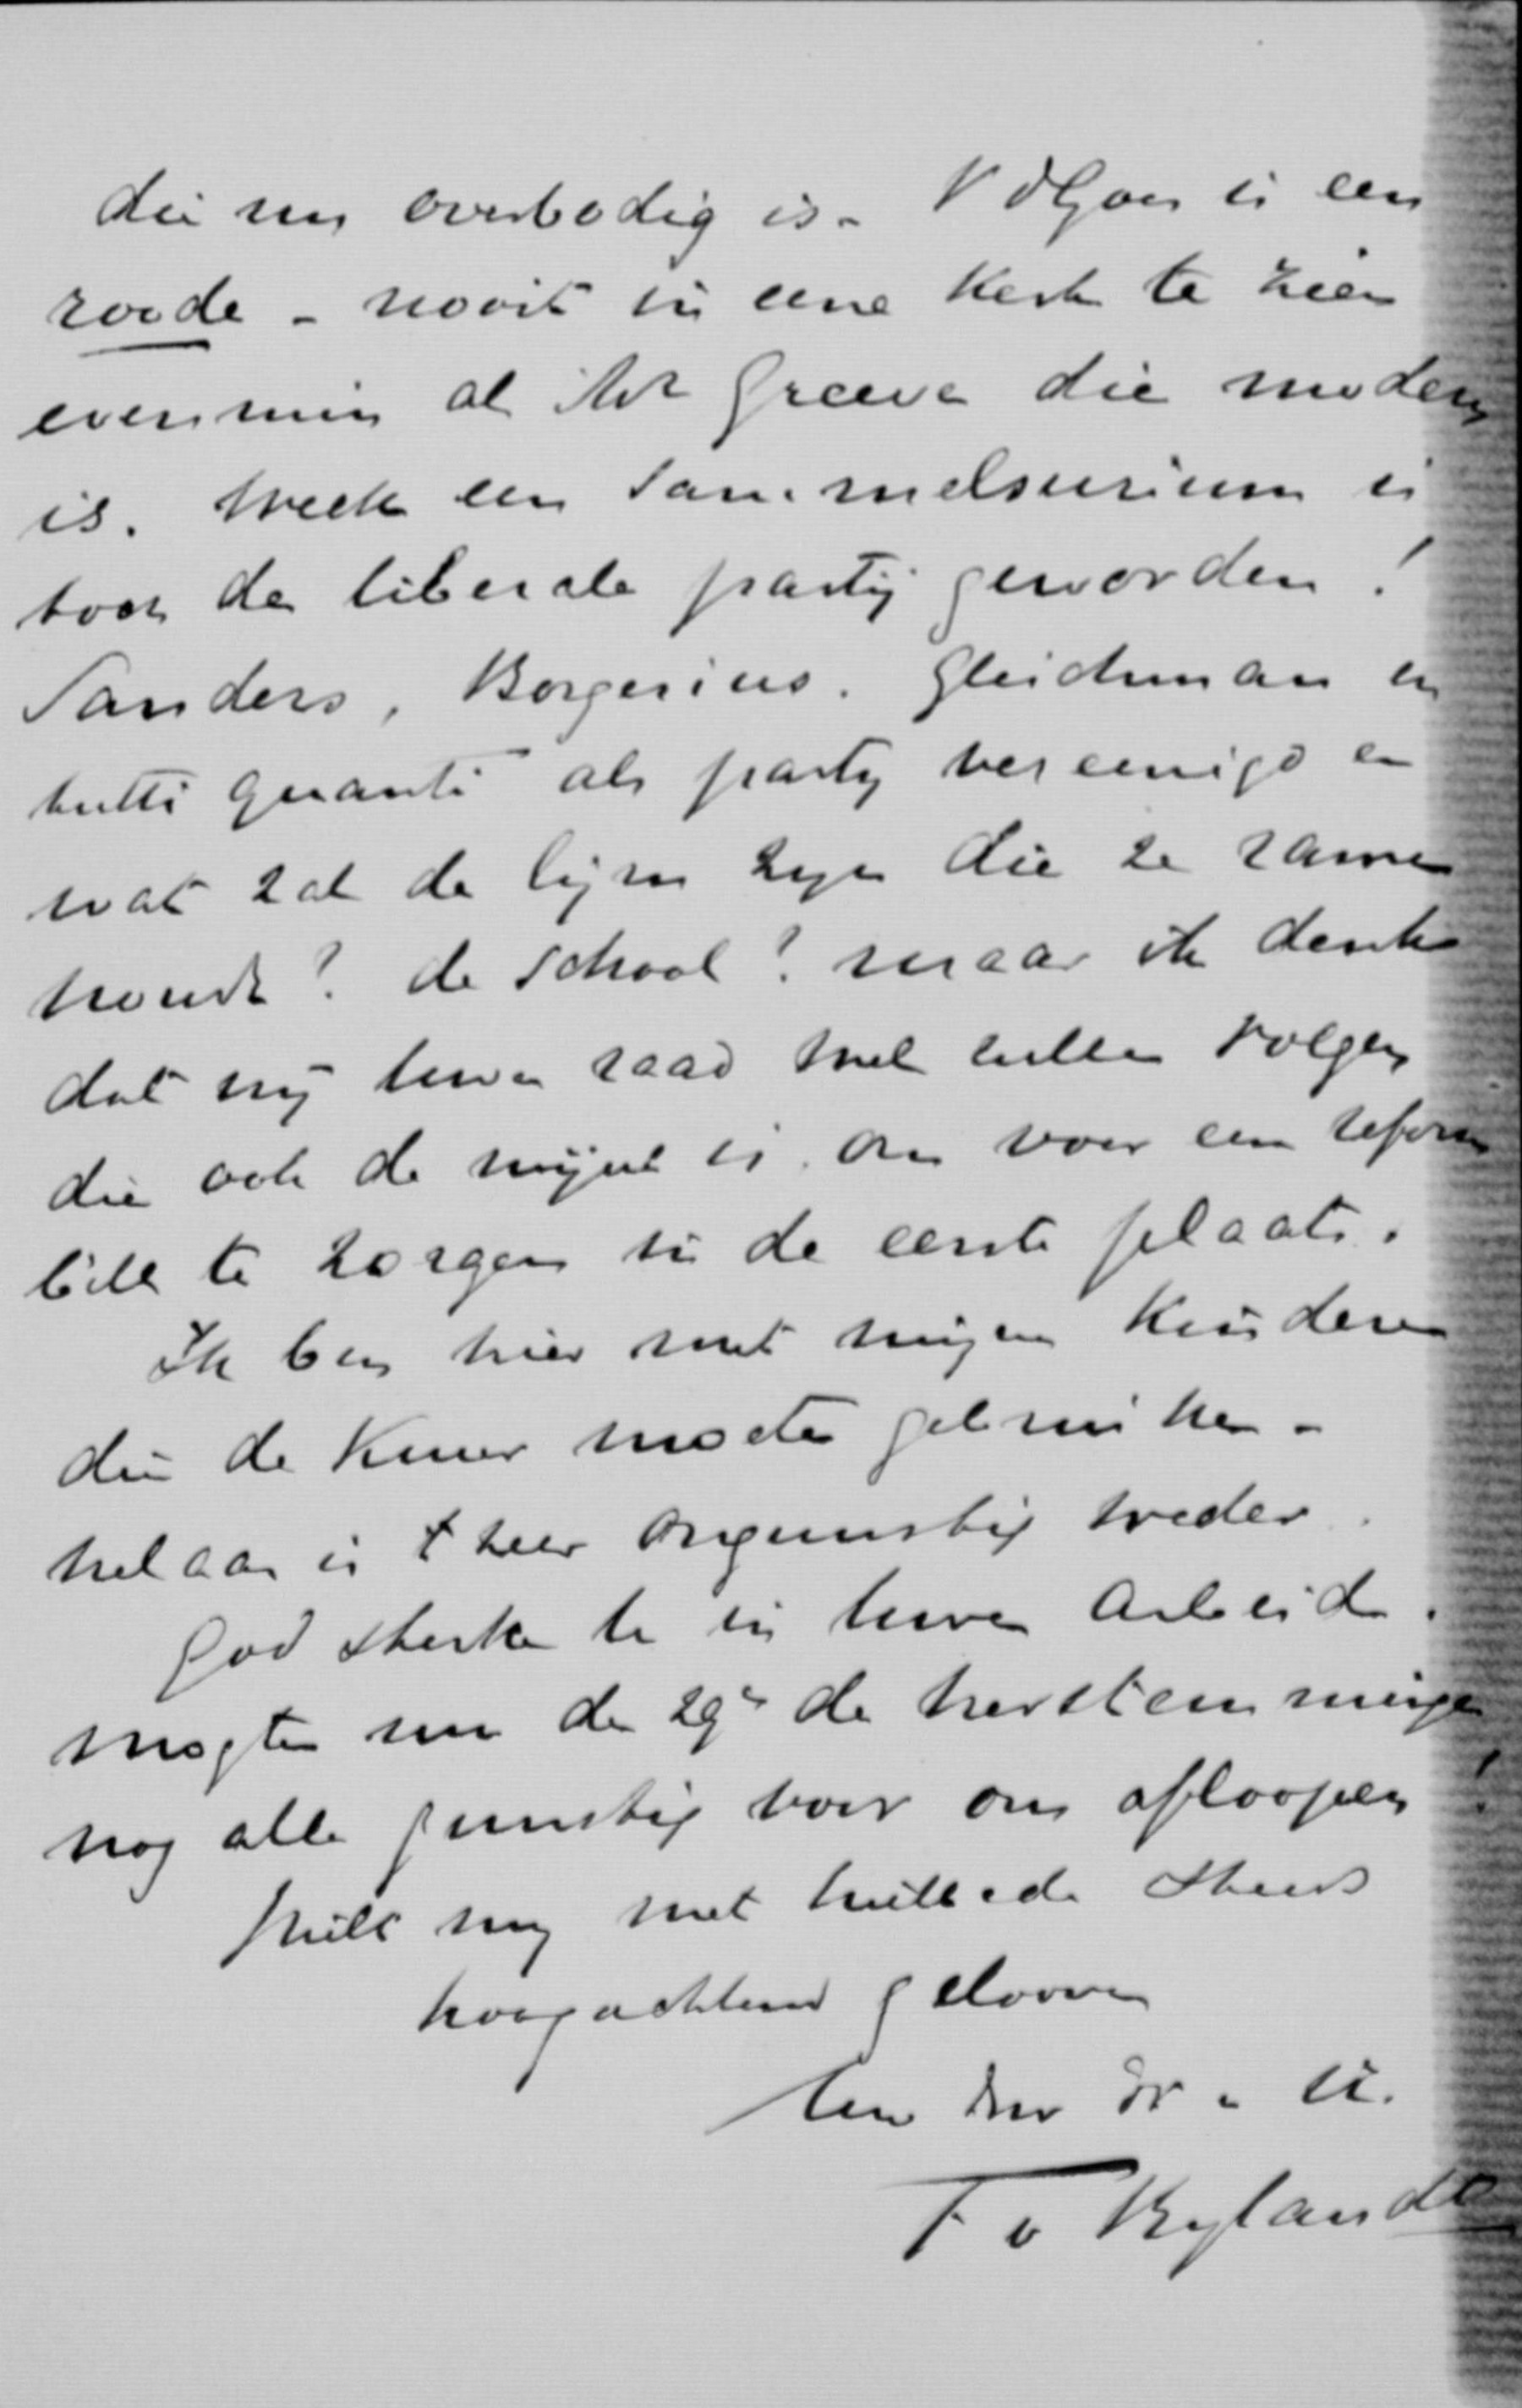 die nu overbodig is - V d Goes is een
roode - nooit in eene kerk te zien
evenmin als de Greeve die modern
is. Welk een Sammelsurium is
toch de liberale partij geworden!
Sanders, Borgesius. Gleichman en
tutti quanti als party vereenigd en
wat zal de lijm zyn die ze samen
houdt? de school? maar ik denk
dat wij uwen raad wel zullen volgen
die ook de mijne is. om voor een reform
bill te zorgen in de eerste plaats.
Ik ben hier met mijn kinderen
die de kuur moeten gebruiken -
helaas is 't zeer ongunstig weder.
God sterke U in uwen arbeid.
mogten nu de 29e de herstemmingen
nog alle gunstig voor ons afloopen!
Wilt my met hulde steeds
hoogachtend gelooven
Uw dw dr
F v Bylandt